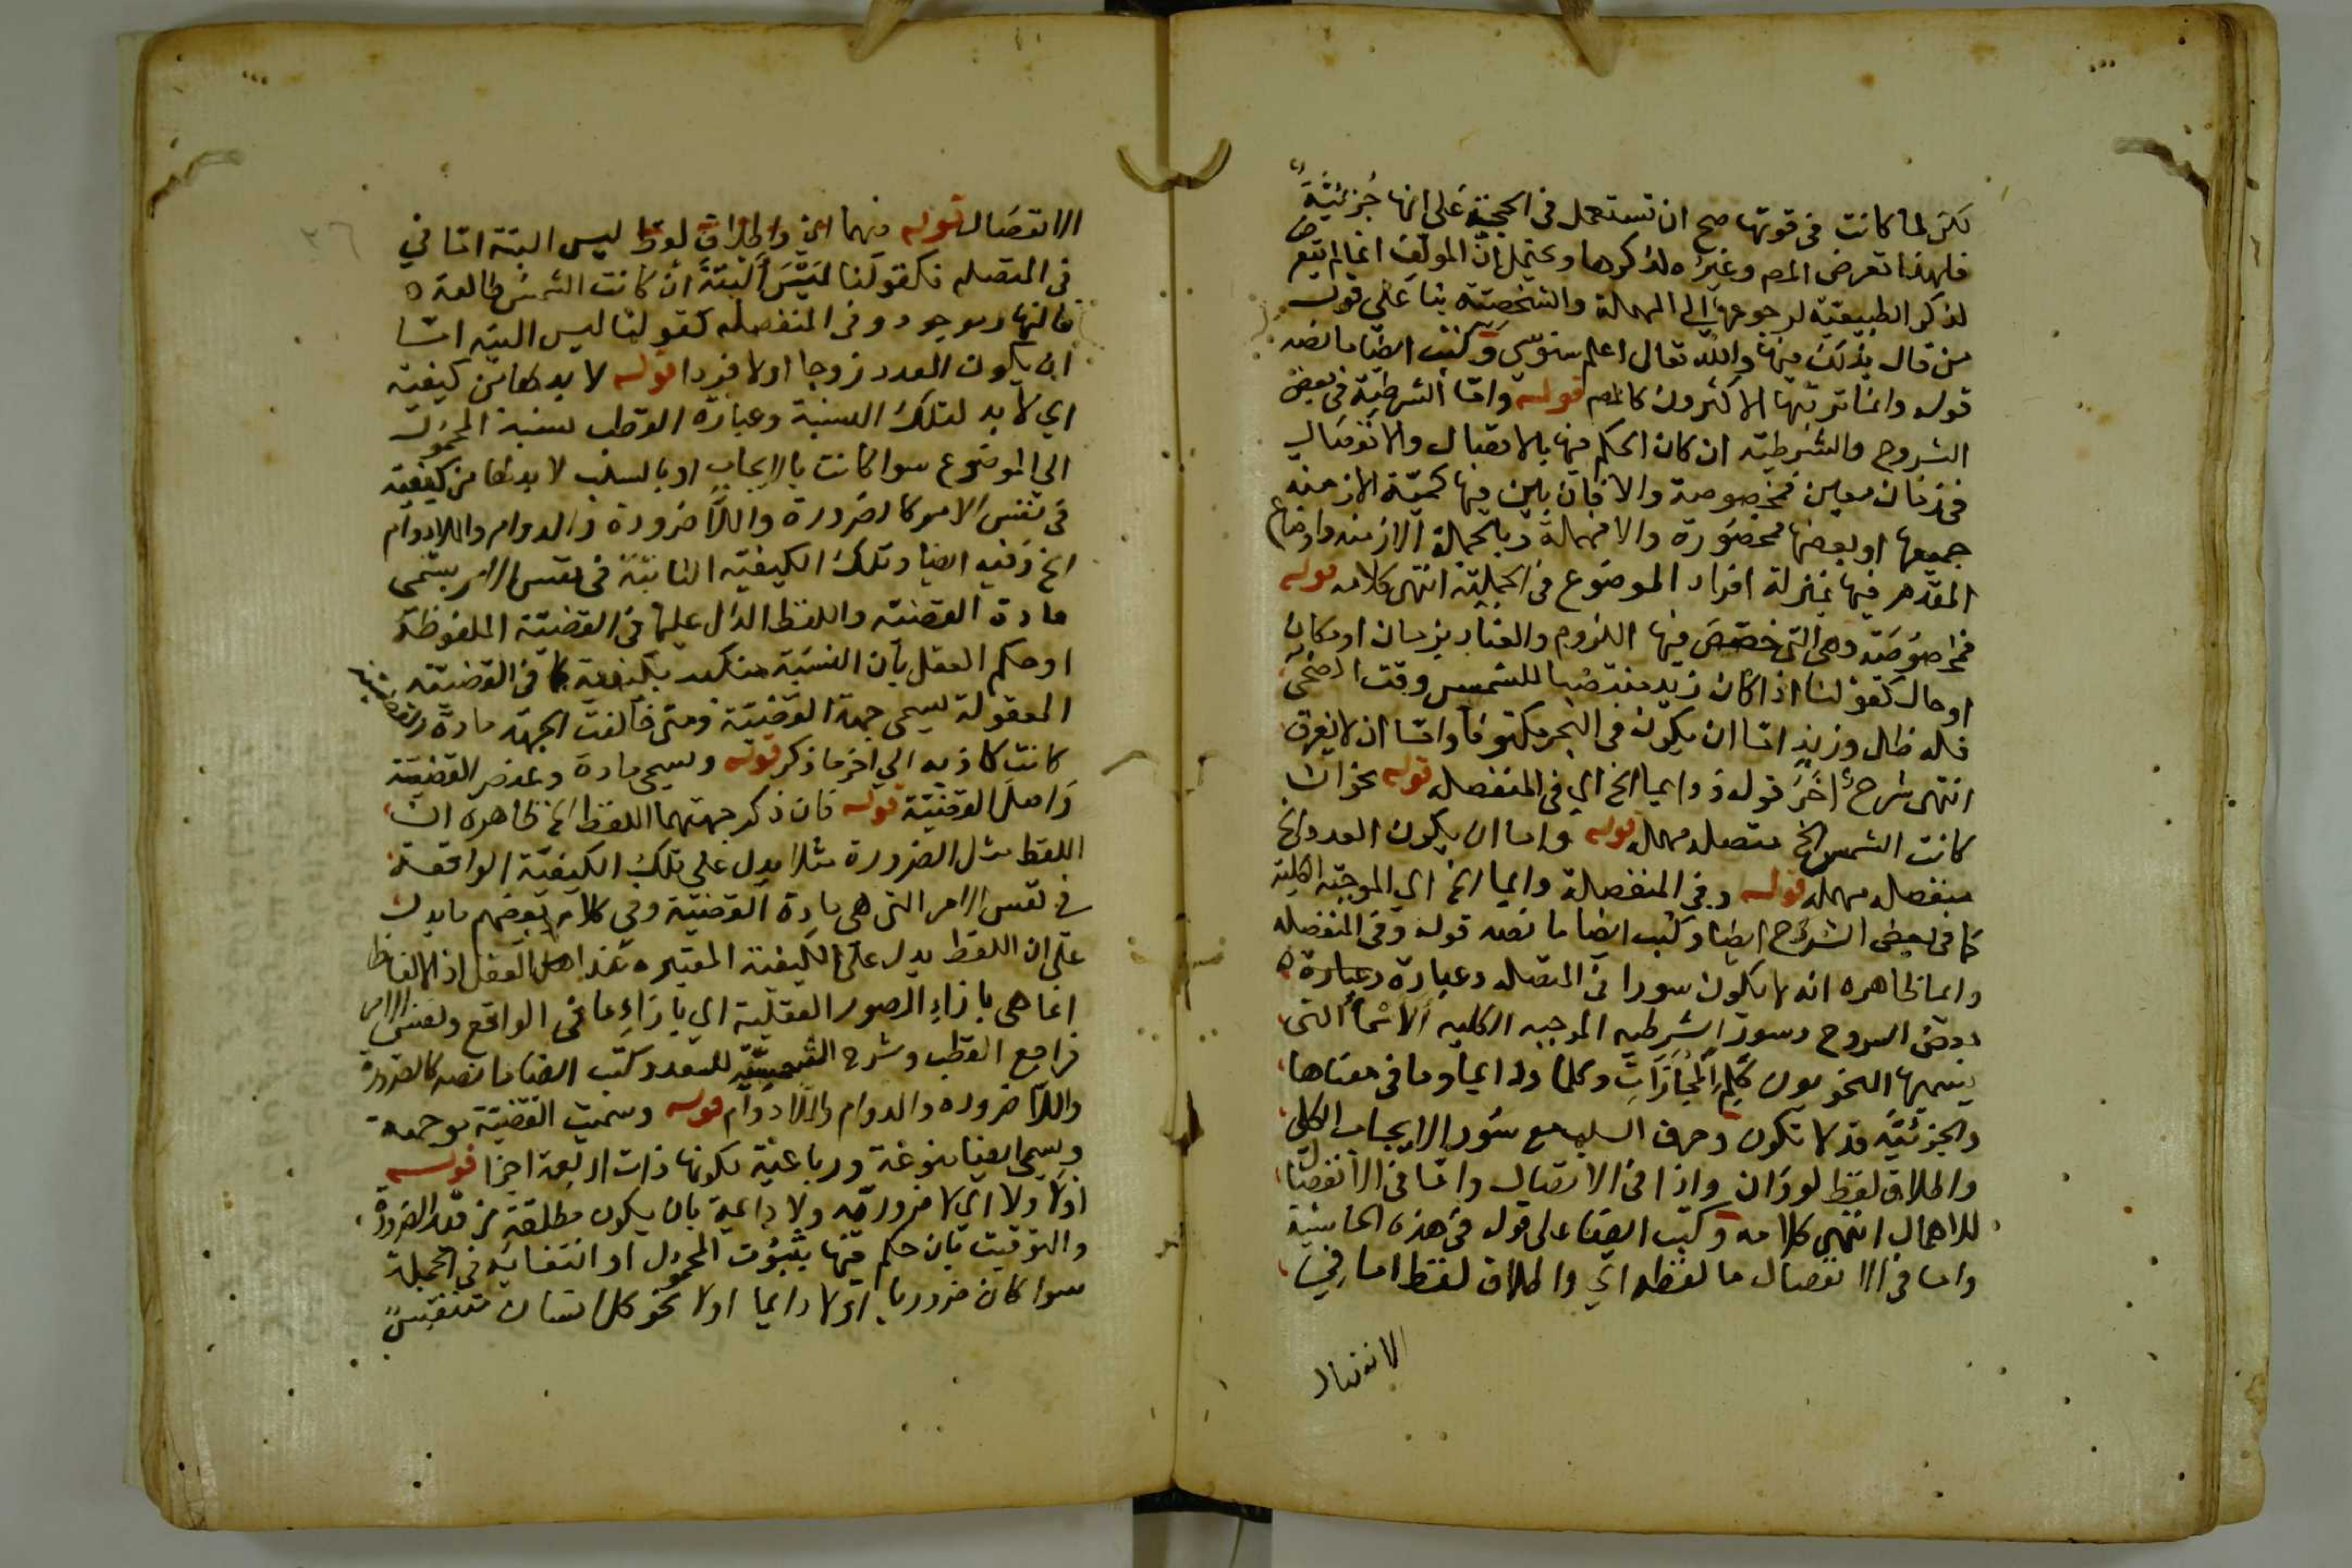 لكن لما كانت فى قوتها صح ان تستعمل فى الحجة على انها جزئية
فلهذا تعرض المص وغيره لذكرها ويحتمل ان المولف انما لم يتعرض
لذكر الطبيعية لرجوعها الي المهملة والشخصية بنا على قول
من قال بذلك فيها والله تعالى اعلم سنوسي وكتب ايضا ما نصه
قوله وانما تر الاكثرون كالمص قوله واما الشرطية فى بعض
الشروح والشرطية ان كان الحكم فيها بالاتصال والانفصال
فى زمان معين فمخصوصة والا فان بين فيها كمية الازمنه
جميعها او بعضها فمحصورة والا فمهملة وبالجملة الازمنه واوضاع
المقدم فيها بمنزلة افراد الموضوع فى الحملية انتهى كلامه قوله
وهى التى خصص فيها اللزوم والعناد بزمان او مكان
او حال كقولنا اذا كان زيد منتصبا للشمس وقت الضحى
فله ظل وزيد اما ان يكون فى البحر مكتوفا واما ان لا يغرق
انتهى شرح اخر قوله ودايما الخ اي فى المنفصله قوله نحو ان
كانت الشمس الخ متصله مهمله قوله واما ان يكون العدد الخ
منفصله مهمله قوله وفى المنفصلة دايما الخ اي الموجبة الكلية
كما فى بعض الشروح ايضا وكتب ايضا ما نصه قوله وفى المنفصله
دايما ظاهره انه لا يكون سورا فى المتصله وعبارة وعبارة
بعض الشروح وسور الشرطيه الموجبه الكليه الاسما التى
يسميها النحويون كلم المجازات وكلما ودايما وما فى معناها
والجزئية قد لا تكون وحرف السلب مع سور الايجاب الكلى
واطلاق لفظ لو وان واذا فى الاتصال واما فى الانفصال
للاهمال انتهى كلامه وكتب ايضا على قوله فى هذه الحاشية
واما فى الانفصال ما لفظه اي واطلاق لفظ اما في
الانفصال
الانفصال قوله فيهما اي واطلاق لفظ ليس البتة اما في
فى المتصله فكقولنا ليس البتة ان كانت الشمس طالعة
فالنهار موجود وفى المنفصله كقولنا ليس البته اما
ان يكون العدد زوجا اولا فردا قوله لا بد لها من كيفية
اي لا بد لتلك النسبة وعبارة القطب نسبة المحمول
الى الموضوع سوا كانت بالايجاب او بالسلب لا بد لها من كيفية
فى نفس الامر كالضرورة واللاضرورة والدوام واللادوام
الخ وفيه ايضا وتلك الكيفية الثابتة فى نفس الامر يسمى
مادة القضية واللفظ الدال عليها فى القضية الملفوظة
او حكم العقل بان النسبة متكيفة بكيفية كذا فى القضية
المعقولة يسمى جهة القضية ومتى خالفت الجهة مادة القضية
كانت كاذبه الى اخر ما ذكر قوله ويسمى مادة وعنصر القضية
واصل القضية قوله فان ذكر جهتهما اللفظ الخ ظاهره ان
اللفظ مثل الضرورة مثلا يدل على تلك الكيفية الواقعة
فى نفس الامر التى هى مادة القضية وفى كلام بعضهم ما يدل
على ان اللفظ يدل على الكيفية المعتبره عند اهل العقل اذ الالفاظ
انما هى بازاء الصور العقلية اي بازاء ما فى الواقع ونفس الامر
فراجع القطب وشرح الشمسية للسعد وكتب ايضا ما نصه كالضرورة
واللا ضروره والدوام واللادوام قوله وسميت القضية موجهة
ويسمى ايضا منوعة ورباعية لكونها ذات اربعة اجزا قوله
اولا ولا اي لا ضرورية ولا دايمة بان يكون مطلقة من قيد الضرورة
والتوقيت بان حكم فيها بثبوت المحمول او انتفايه فى الجملة
سوا كان ضروريا اولا دايما اولا نحو كل انسان متنفس